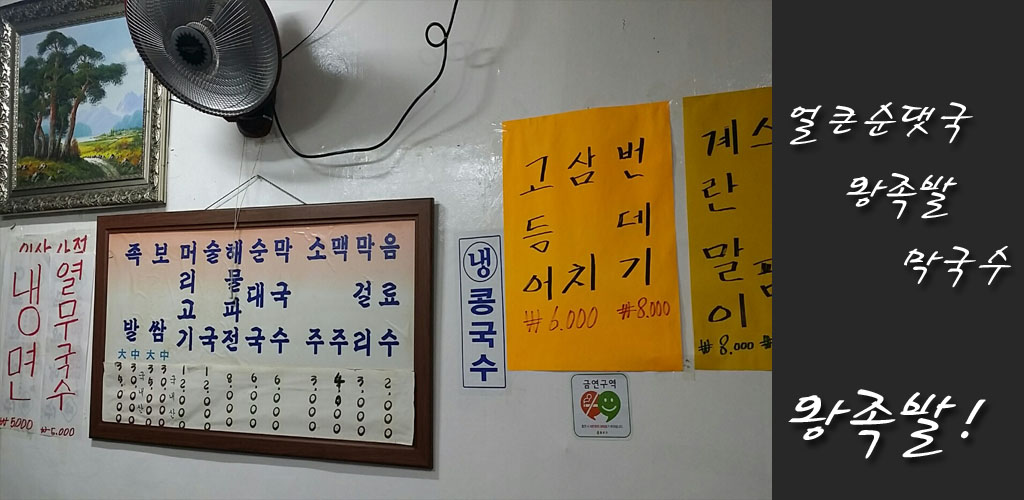 냉면
₩5000
열무국수
족발
보쌈
머리고기
술국
해물파전
순대국
막국수
소주
맥주
막걸리
음료수
大 中 大 中
국내산
12000
12000
8000
6000
6000
3000
4000
3000
2000
냉콩국수
고등어
삼치
₩6.000
번데기
₩8.000
계란말이
₩8.000
금연구역
얼큰순댓국
왕족발
막국수
왕족발!